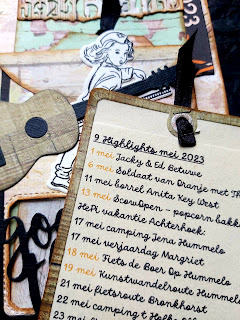 9 Highlights mei 2023
1 mei Jacky & Ed Betuwe
6 mei Soldaat van Oranje met
11 mei borrel Anita Key West
13 mei ScovOpen - popcorn
HePi vakantie Achterhoek:
17 mei camping Jena Hummelo
17 mei verjaardag Margriet
18 mei Fiets de Boer Op Hummelo
19 mei Kunstwandelroute
21 mei fietsroute Bronkhorst
22 mei camping t
23 mei